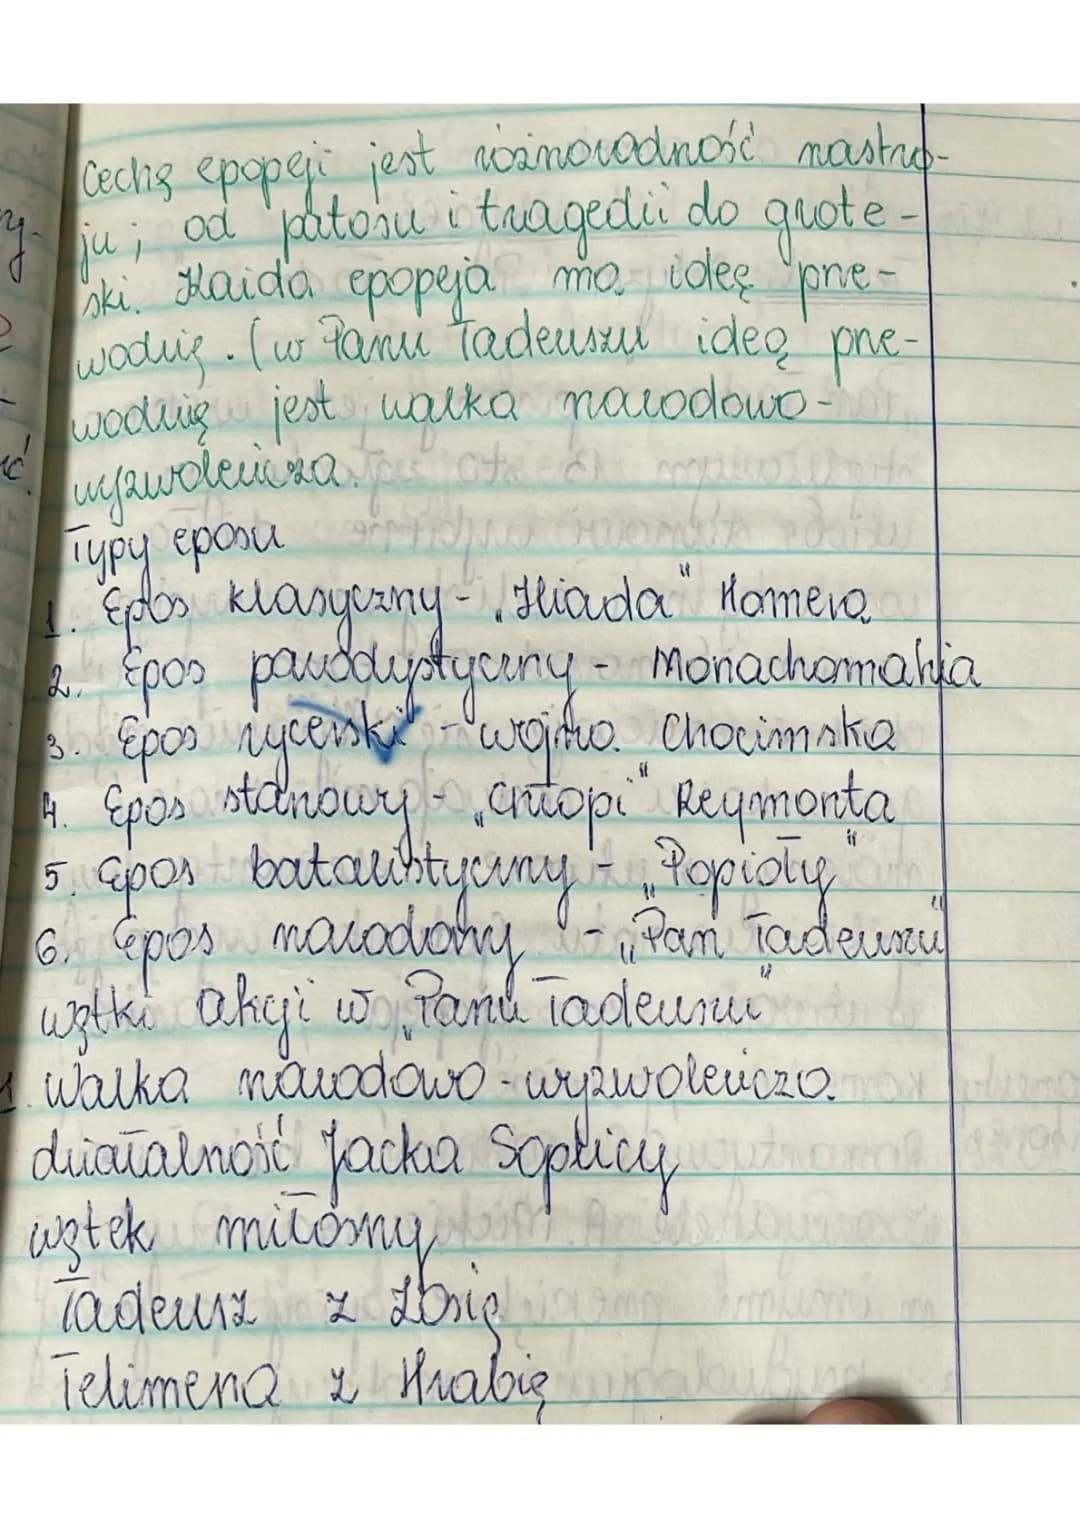 Cechą epopeji jest różnorodność nastro-
ju; od patosu i tragedii do grote-
ski. Każda epopeja ma ideę prze-
wodnią. (w Panu Tadeuszu ideą prze-
wodnią jest walka narodowo-
wyzwoleńcza.
Typy eposu
1. Epos klasyczny - „Iliada" Homera
2. Epos parodystyczny - Monachomahia
3. Epos rycerski - wojna Chocimska
4. Epos stanowy - „Chłopi" Reymonta
5. Epos batalistyczny - „Popioły"
6. Epos narodowy - „Pan Tadeusz"
wątki akcji w „Panu Tadeuszu"
1. Walka narodowo-wyzwoleńcza.
działalność Jacka Soplicy
wątek miłosny
Tadeusz z Zosią
Telimena z Hrabią